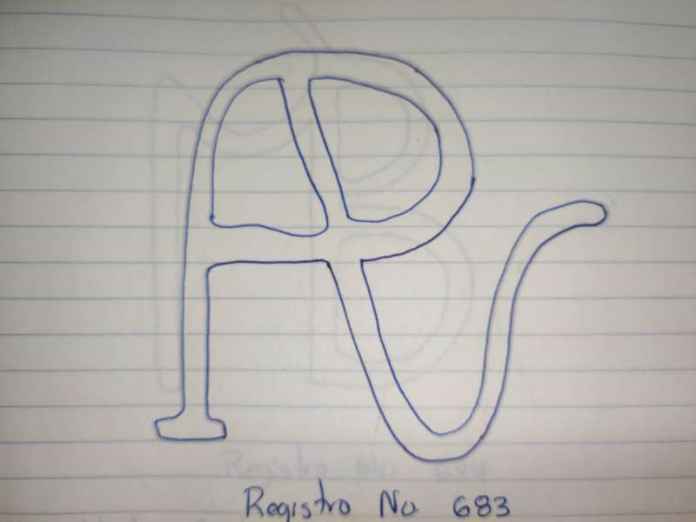 Registro No 683